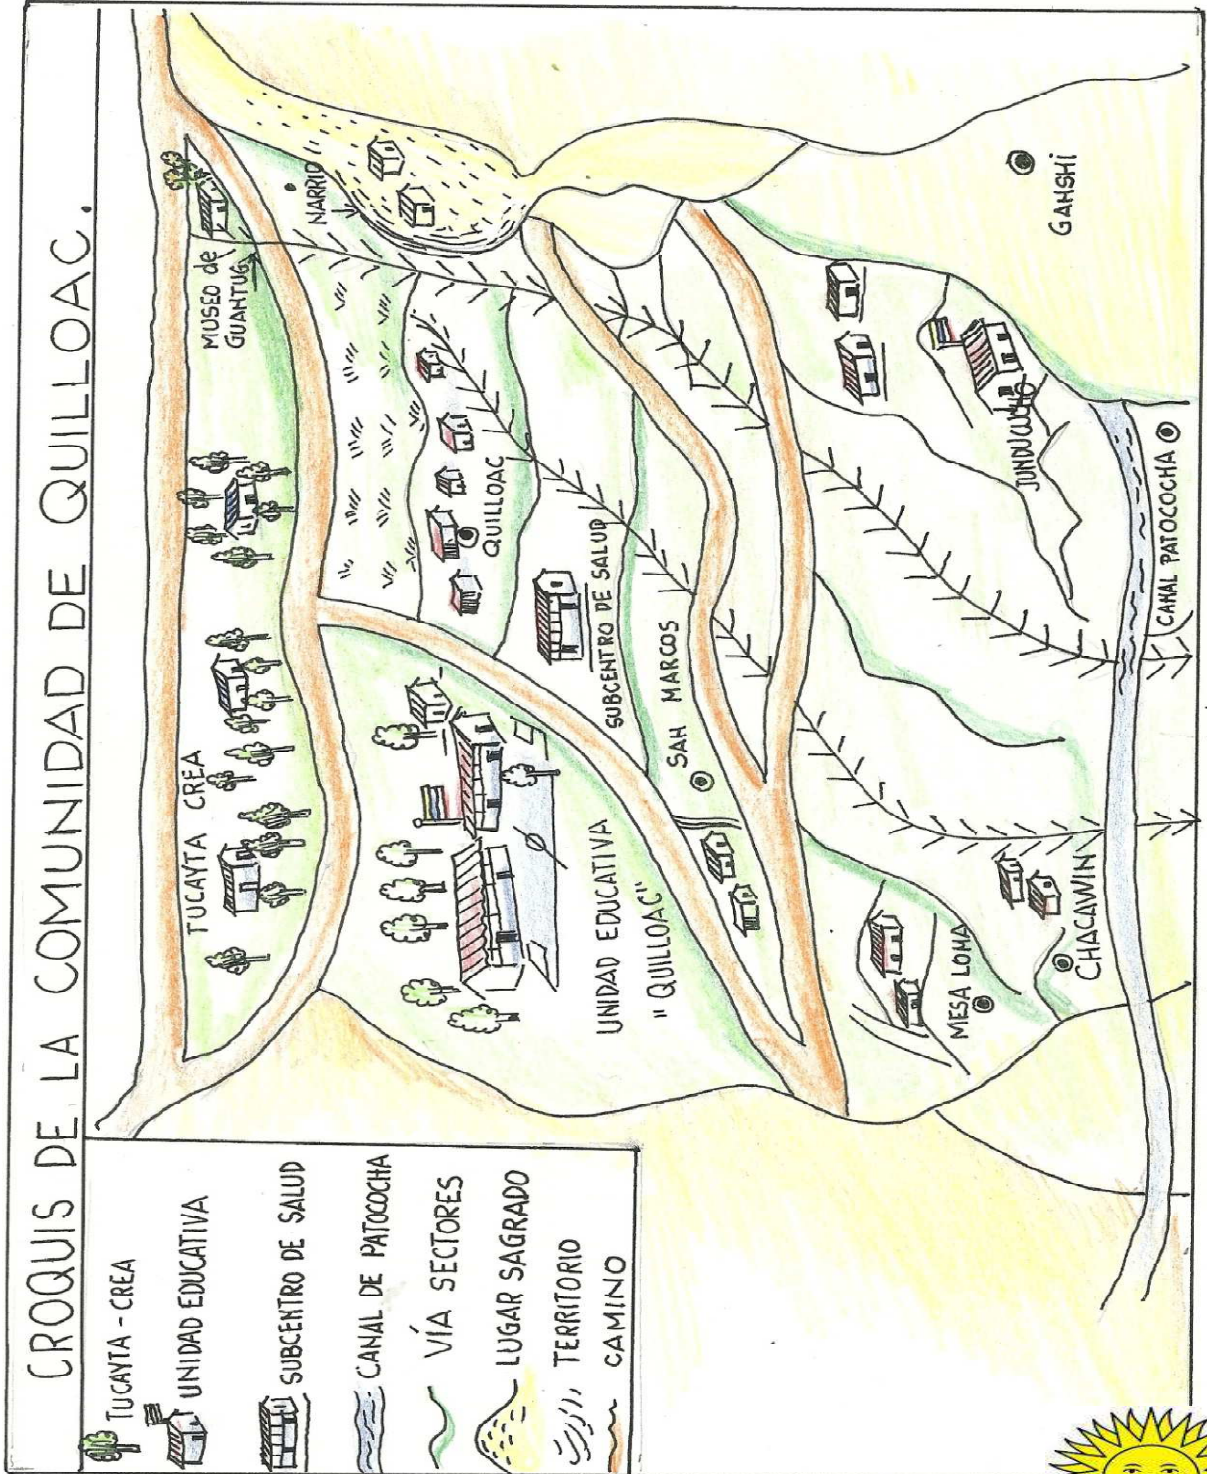 CROQUIS DE LA COMUNIDAD DE QUILLOAC.
TUCAYTA - CREA
UNIDAD EDUCATIVA
SUBCENTRO DE SALUD
CANAL DE PATOCOCHA
VÍA SECTORES
LUGAR SAGRADO
TERRITORIO
CAMINO
TUCAYTA CREA
MUSEO de
GUANTUG
NARRIO
QUILLOAC
UNIDAD EDUCATIVA
"QUILLOAC"
SUBCENTRO DE SALUD
SAN MARCOS
MESA LOMA
CHACAWIN
JUNDUCUCHO
GANSHI
CANAL PATOCOCHA